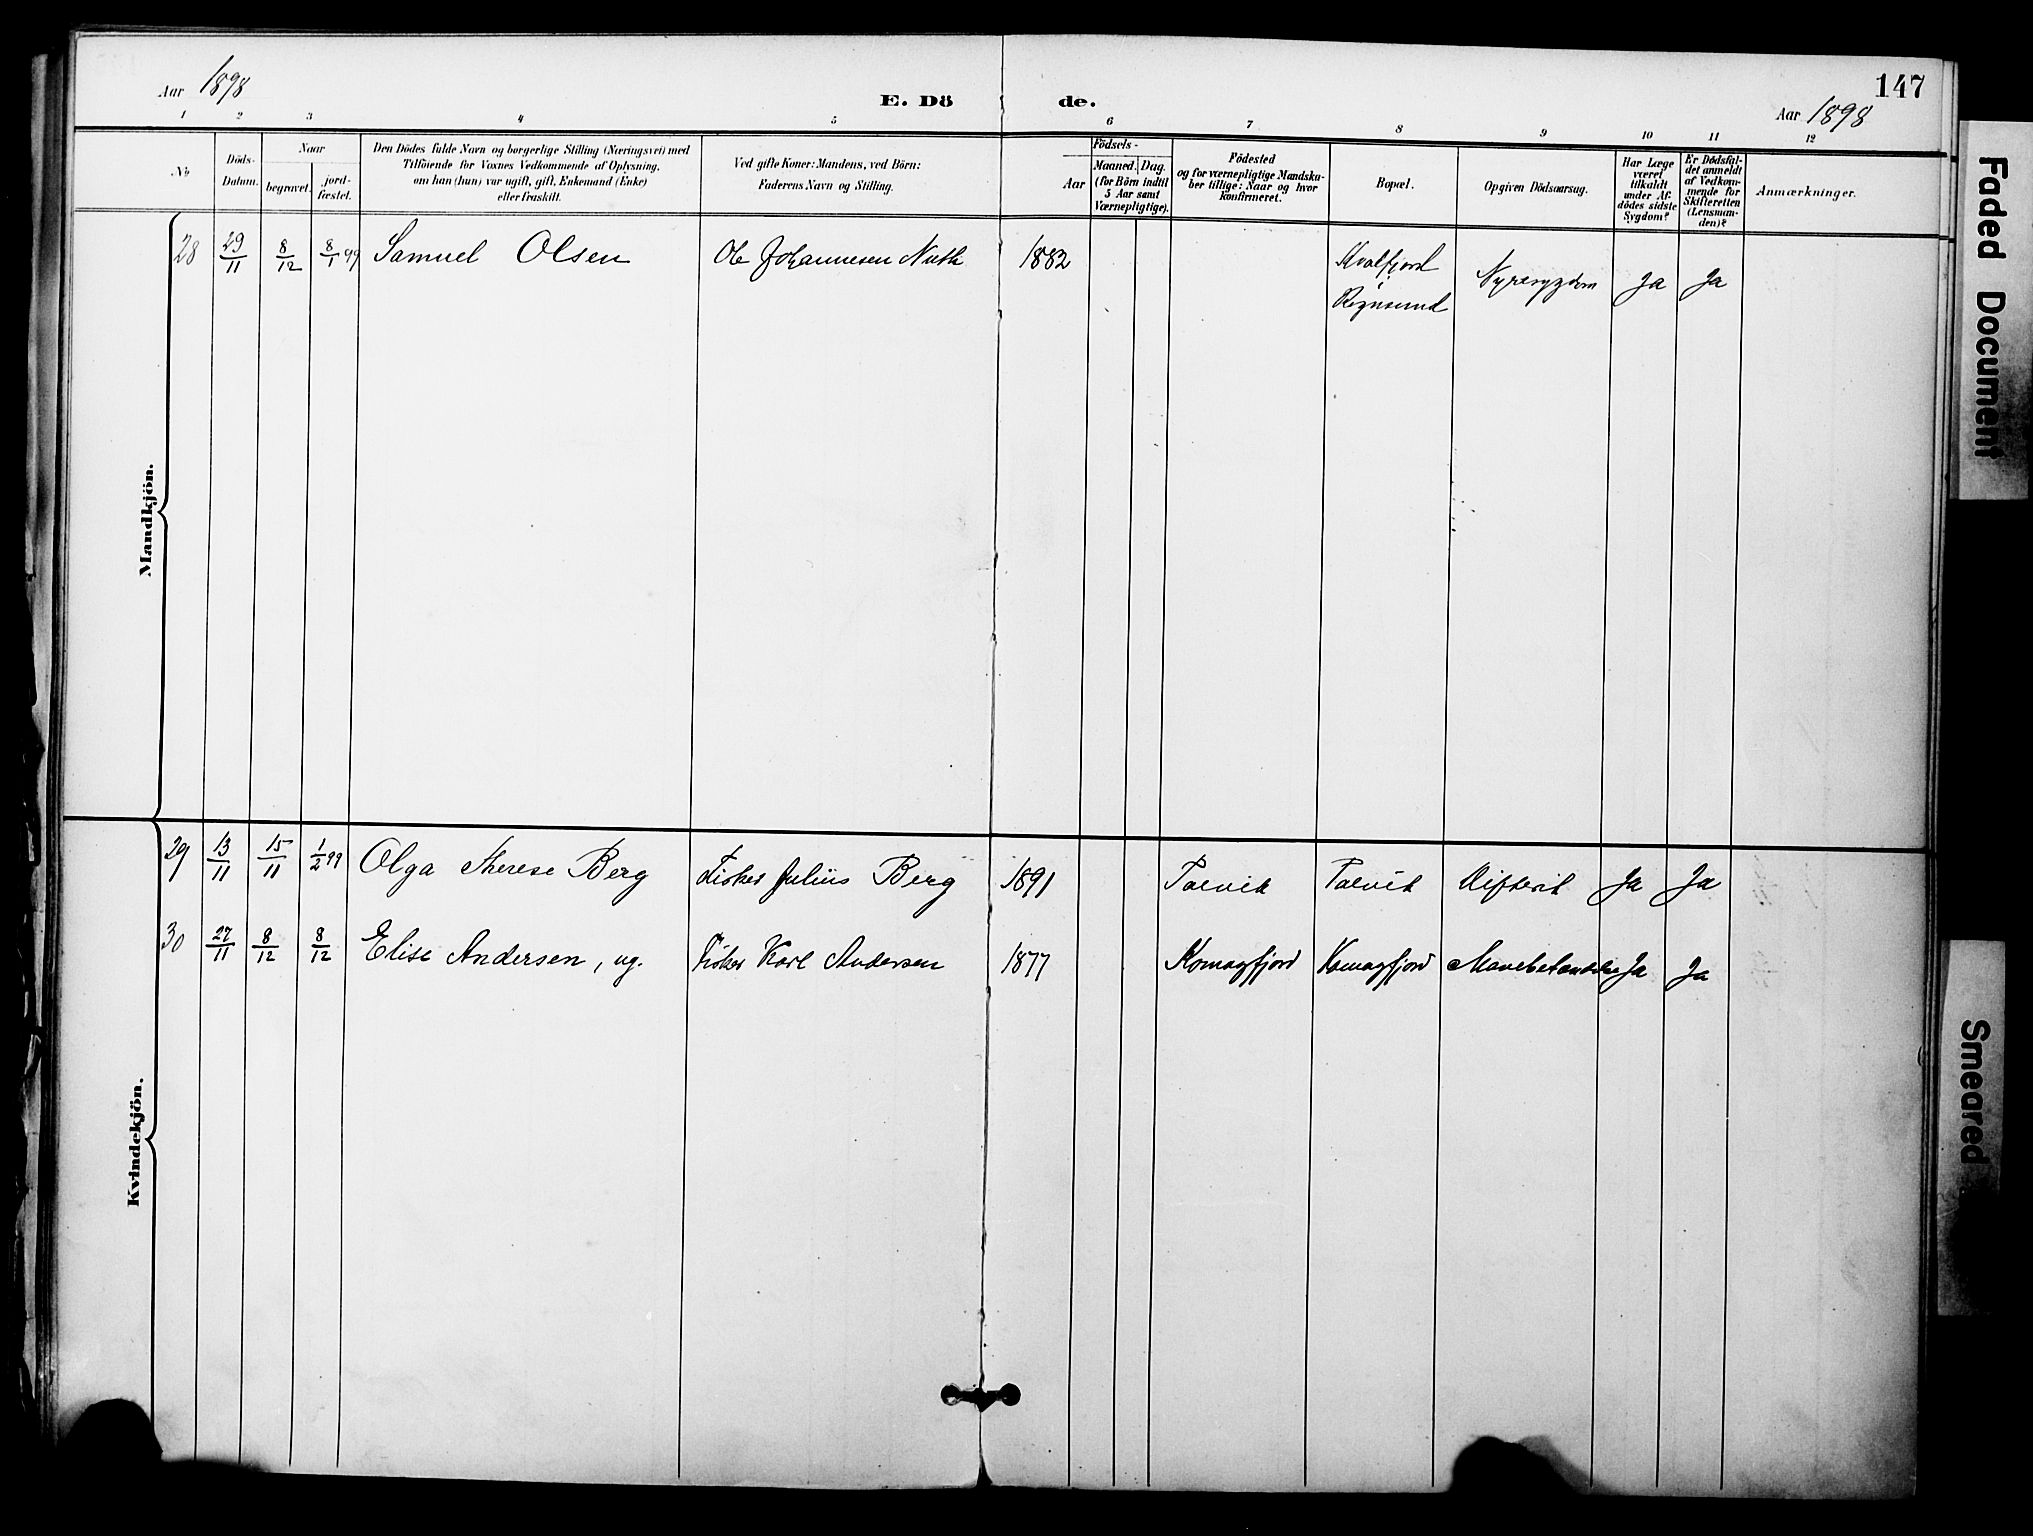 Aar 1898
E. Dö de.
147
Aar 1898
1 2 3 4 5 6 7 8 9 10 11 12
No
Döds-
Datum.
Naar
begravet.
jord-
fæstet.
Den Dödes fulde Navn og borgerlige Stilling (Næringsvei) med
Tilföiende for Voxnes Vedkommende af Oplysning,
om han (hun) var ugift, gift, Enkemand (Enke)
eller fraskilt.
Ved gifte Koner: Mandens, ved Börn:
Faderens Navn og Stilling.
Födsels-
Aar
Maaned. Dag.
(for Börn indtil
5 Aar samt
Værnepligtige).
Födested
og for værnepligtige Mandska-
ber tillige: Naar og hvor
konfirmeret.
Bopæl.
Opgiven Dödsaarsag.
Har Læge
været
tilkaldt
under Af-
dödes sidste
Sygdom?
Er Dödsfal-
det anmeldt
af Vedkom-
mende for
Skifteretten
(Lensman-
den)?
Anmærkninger.
Mandkjön.
28 29/11 8/12 8/1 99 Samuel Olsen Ole Johannesen 1882 Kvalfjord Nyresygdom Ja Ja
Rognsund
Kvindekjön.
29 13/11 15/11 1/2 99 Olga Therese Berg Fisker Julius Berg 1891 Talvik Talvik Difterit Ja Ja
30 27/11 8/12 8/12 Elise Andersen, ug. Fisker Karl Andersen 1877 Komagfjord Komagfjord Mavebetændelse Ja Ja
Faded Document
Smeared